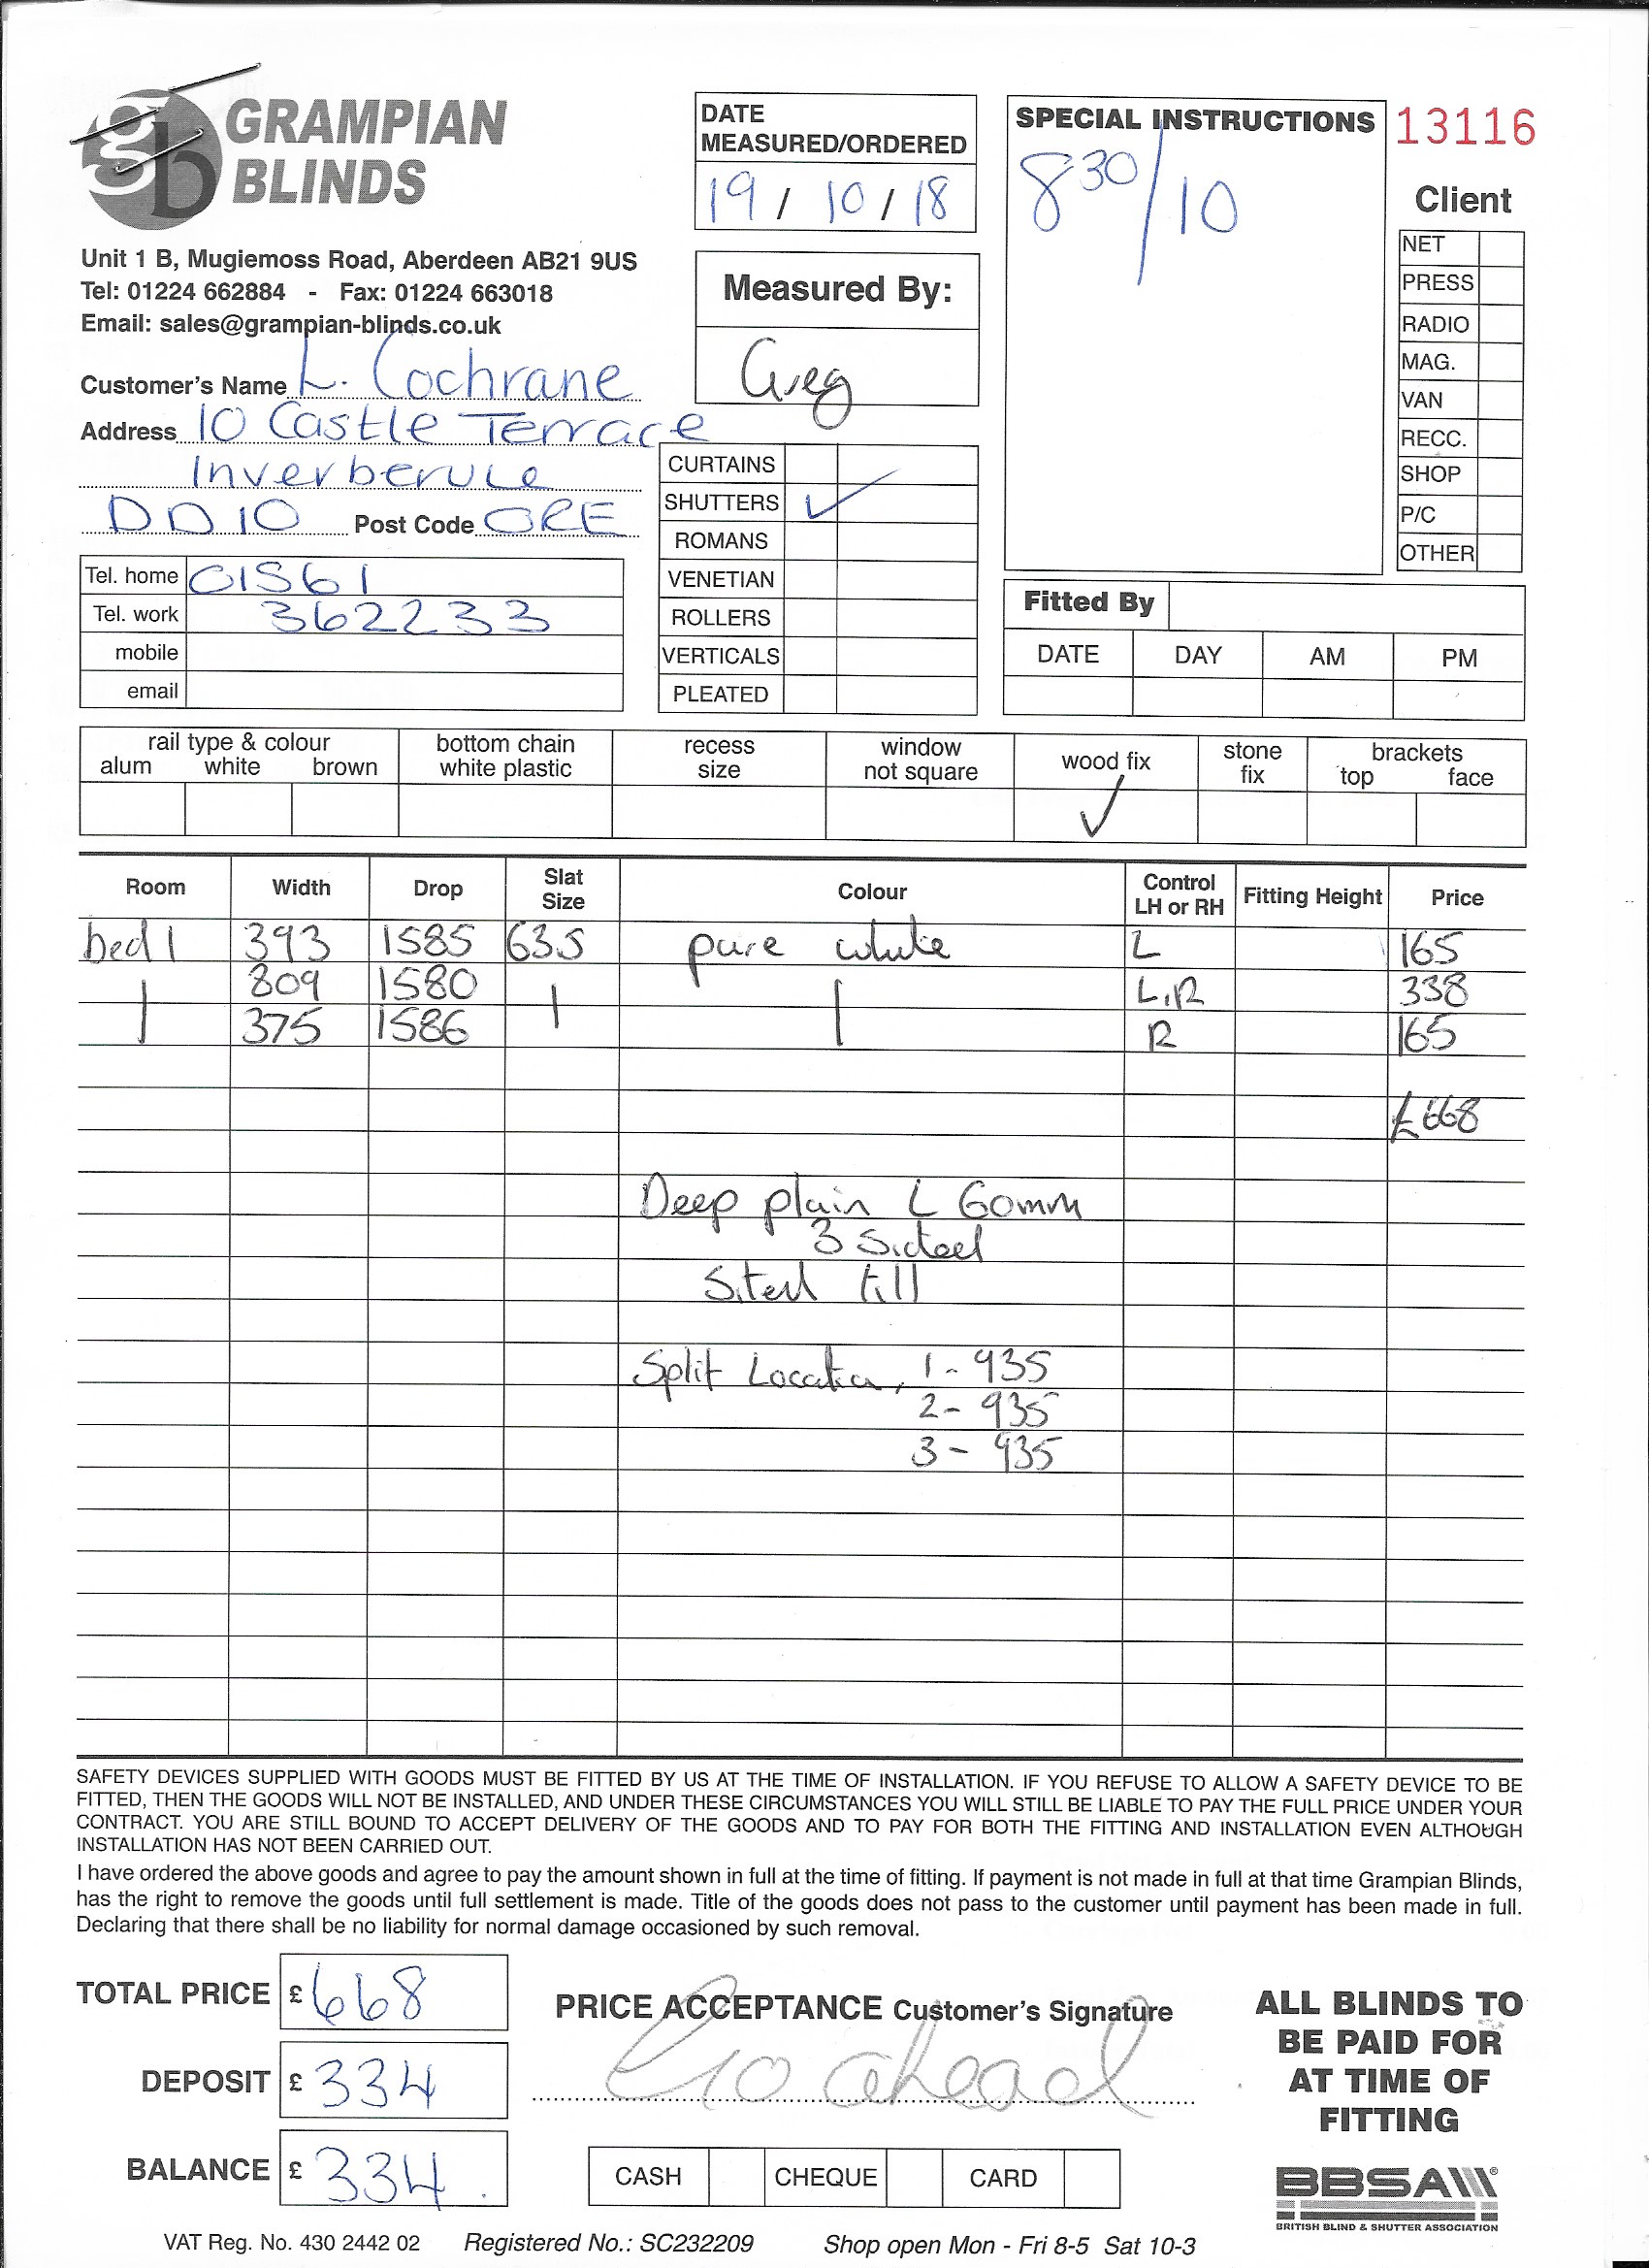 GRAMPIAN
BLINDS
gb
Unit 1 B, Mugiemoss Road, Aberdeen AB21 9US
Tel: 01224 662884 - Fax: 01224 663018
Email: sales@grampian-blinds.co.uk
Customer's Name L. Cochrane
Address 10 Castle Terrace
Inverbervie
DD10 Post Code 0RE
Tel. home 01561
Tel. work 362233
mobile
email
DATE
MEASURED/ORDERED
19 / 10 / 18
Measured By:
Greg
CURTAINS
SHUTTERS ✓
ROMANS
VENETIAN
ROLLERS
VERTICALS
PLEATED
SPECIAL INSTRUCTIONS
8 30 / 10
13116
Client
NET
PRESS
RADIO
MAG.
VAN
RECC.
SHOP
P/C
OTHER
Fitted By
DATE DAY AM PM
rail type & colour bottom chain recess window wood fix stone brackets
alum white brown white plastic size not square ✓ fix top face
Room Width Drop Slat Size Colour Control LH or RH Fitting Height Price
bed 1 393 1585 63.5 pure white L 165
| 809 1580 | | L,R 338
375 1586 R 165
£668
Deep plain L 60mm
3 Sided
Sited till
Split Location, 1 - 935
2 - 935
3 - 935
SAFETY DEVICES SUPPLIED WITH GOODS MUST BE FITTED BY US AT THE TIME OF INSTALLATION. IF YOU REFUSE TO ALLOW A SAFETY DEVICE TO BE
FITTED, THEN THE GOODS WILL NOT BE INSTALLED, AND UNDER THESE CIRCUMSTANCES YOU WILL STILL BE LIABLE TO PAY THE FULL PRICE UNDER YOUR
CONTRACT. YOU ARE STILL BOUND TO ACCEPT DELIVERY OF THE GOODS AND TO PAY FOR BOTH THE FITTING AND INSTALLATION EVEN ALTHOUGH
INSTALLATION HAS NOT BEEN CARRIED OUT.
I have ordered the above goods and agree to pay the amount shown in full at the time of fitting. If payment is not made in full at that time Grampian Blinds,
has the right to remove the goods until full settlement is made. Title of the goods does not pass to the customer until payment has been made in full.
Declaring that there shall be no liability for normal damage occasioned by such removal.
TOTAL PRICE £ 668
DEPOSIT £ 334
BALANCE £ 334
PRICE ACCEPTANCE Customer's Signature
Go ahead
CASH CHEQUE CARD
ALL BLINDS TO
BE PAID FOR
AT TIME OF
FITTING
BBSA
BRITISH BLIND & SHUTTER ASSOCIATION
VAT Reg. No. 430 2442 02 Registered No.: SC232209 Shop open Mon - Fri 8-5 Sat 10-3